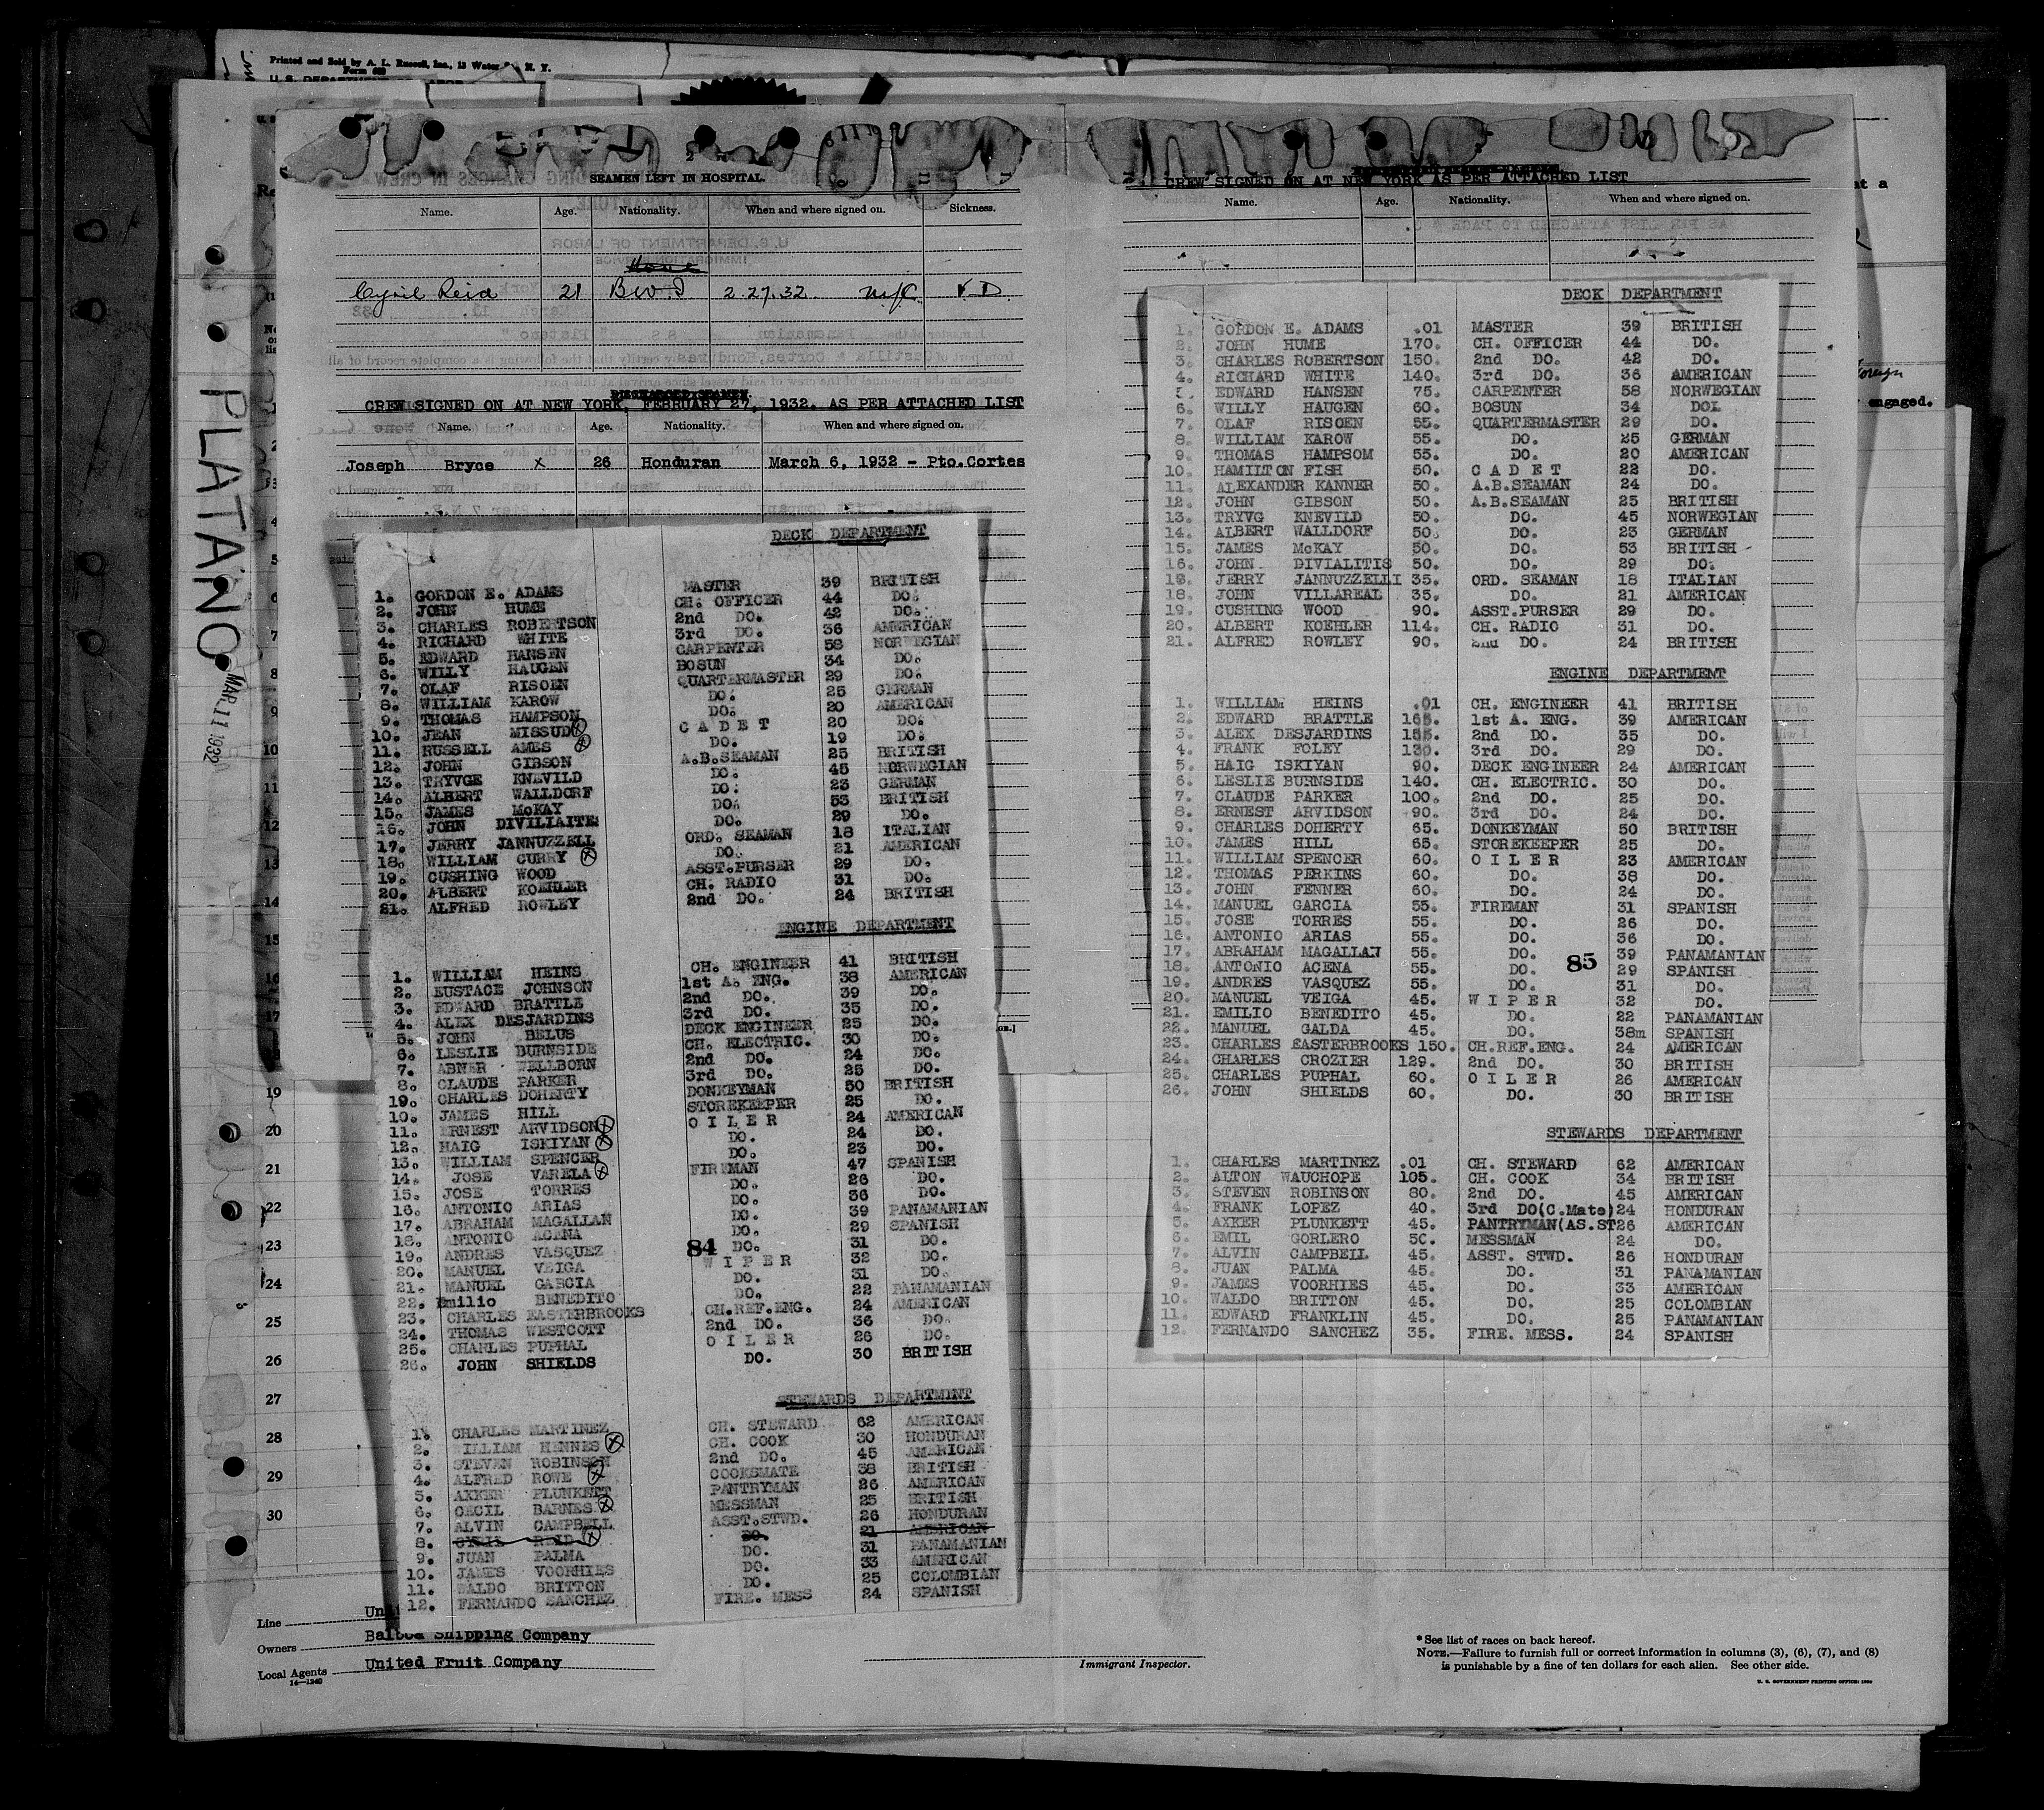 Printed and Sold by A. L. Russell, Inc., 13 Water N. Y.
Form 689
PLATANO
MAR 11 1932
SEAMEN LEFT IN HOSPITAL.
Name. Age. Nationality. When and where signed on. Sickness.
None
Cyril Reid 21 B W I 2.27.32 N.Y.C. V D
DISCHARGED SEAMEN.
CREW SIGNED ON AT NEW YORK, FEBRUARY 27, 1932. AS PER ATTACHED LIST
Name. Age. Nationality. When and where signed on.
Joseph Bryce x 26 Honduran March 6, 1932 - Pto.Cortes
DECK DEPARTMENT
1. GORDON E. ADAMS MASTER 39 BRITISH
2. JOHN HUME CH. OFFICER 44 DO.
3. CHARLES ROBERTSON 2nd DO. 42 DO.
4. RICHARD WHITE 3rd DO. 36 AMERICAN
5. EDWARD HANSEN CARPENTER 58 NORWEGIAN
6. WILLY HAUGEN BOSUN 34 DO.
7. OLAF RISOEN QUARTERMASTER 29 DO.
8. WILLIAM KAROW DO. 25 GERMAN
9. THOMAS HAMPSON DO. 20 AMERICAN
10. JEAN MISSUD x C A D E T 20 DO.
11. RUSSELL AMES x DO. 19 DO.
12. JOHN GIBSON A.B.SEAMAN 25 BRITISH
13. TRYVGE KNEVILD DO. 45 NORWEGIAN
14. ALBERT WALLDORF DO. 23 GERMAN
15. JAMES McKAY DO. 53 BRITISH
16. JOHN DIVILIAITES DO. 29 DO.
17. JERRY JANNUZZELL ORD. SEAMAN 18 ITALIAN
18. WILLIAM CURRY x DO. 21 AMERICAN
19. CUSHING WOOD ASST.PURSER 29 DO.
20. ALBERT KOEHLER CH. RADIO 31 DO.
21. ALFRED ROWLEY 2nd DO. 24 BRITISH
ENGINE DEPARTMENT
1. WILLIAM HEINS CH. ENGINEER 41 BRITISH
2. EUSTACE JOHNSON 1st A. ENG. 38 AMERICAN
3. EDWARD BRATTLE 2nd DO. 39 DO.
4. ALEX DESJARDINS 3rd DO. 35 DO.
5. JOHN BELUS DECK ENGINEER 25 DO.
6. LESLIE BURNSIDE CH. ELECTRIC. 30 DO.
7. ABNER WELLBORN 2nd DO. 24 DO.
8. CLAUDE PARKER 3rd DO. 25 DO.
19. CHARLES DOHERTY DONKEYMAN 50 BRITISH
10. JAMES HILL STOREKEEPER 25 DO.
11. ERNEST ARVIDSON x O I L E R 24 AMERICAN
12. HAIG ISKIYAN x DO. 24 DO.
13. WILLIAM SPENCER DO. 23 DO.
14. JOSE VARELA x FIREMAN 47 SPANISH
15. JOSE TORRES DO. 26 DO.
16. ANTONIO ARIAS DO. 36 DO.
17. ABRAHAM MAGALLAN DO. 39 PANAMANIAN
18. ANTONIO ACENA DO. 29 SPANISH
19. ANDRES VASQUEZ 84 DO. 31 DO.
20. MANUEL VEIGA W I P E R 32 DO.
21. MANUEL GARCIA DO. 31 DO.
22. Emilio BENEDITO DO. 22 PANAMANIAN
23. CHARLES EASTERBROOKS CH.REF.ENG. 24 AMERICAN
24. THOMAS WESTCOTT 2nd DO. 36 DO.
25. CHARLES PUPHAL O I L E R 26 DO.
26. JOHN SHIELDS DO. 30 BRITISH
STEWARDS DEPARTMENT
1. CHARLES MARTINEZ CH. STEWARD 62 AMERICAN
2. WILLIAM HENNES x CH. COOK 30 HONDURAN
3. STEVEN ROBINSON 2nd DO. 45 AMERICAN
4. ALFRED ROWE x COOKSMATE 38 BRITISH
5. AXKER PLUNKETT PANTRYMAN 26 AMERICAN
6. CECIL BARNES x MESSMAN 25 BRITISH
7. ALVIN CAMPBELL ASST.STWD. 26 HONDURAN
8. CYRIL REID x DO. 21 AMERICAN
9. JUAN PALMA DO. 31 PANAMANIAN
10. JAMES VOORHIES DO. 33 AMERICAN
11. WALDO BRITTON DO. 25 COLOMBIAN
12. FERNANDO SANCHEZ FIRE. MESS 24 SPANISH
Line
Owners Balboa Shipping Company
Local Agents United Fruit Company
14-1240
CREW SIGNED ON AT NEW YORK AS PER ATTACHED LIST
Name. Age. Nationality. When and where signed on.
DECK DEPARTMENT
1. GORDON E. ADAMS .01 MASTER 39 BRITISH
2. JOHN HUME 170. CH. OFFICER 44 DO.
3. CHARLES ROBERTSON 150. 2nd DO. 42 DO.
4. RICHARD WHITE 140. 3rd DO. 36 AMERICAN
5. EDWARD HANSEN 75. CARPENTER 58 NORWEGIAN
6. WILLY HAUGEN 60. BOSUN 34 DO.
7. OLAF RISOEN 55. QUARTERMASTER 29 DO.
8. WILLIAM KAROW 55. DO. 25 GERMAN
9. THOMAS HAMPSOM 55. DO. 20 AMERICAN
10. HAMILTON FISH 50. C A D E T 22 DO.
11. ALEXANDER KANNER 50. A.B.SEAMAN 24 DO.
12. JOHN GIBSON 50. A.B.SEAMAN 25 BRITISH
13. TRYVG KNEVILD 50. DO. 45 NORWEGIAN
14. ALBERT WALLDORF 50. DO. 23 GERMAN
15. JAMES McKAY 50. DO. 53 BRITISH
16. JOHN DIVIALITIS 50. DO. 29 DO.
JERRY JANNUZZELLI 35. ORD. SEAMAN 18 ITALIAN
18. JOHN VILLAREAL 35. DO. 21 AMERICAN
19. CUSHING WOOD 90. ASST.PURSER 29 DO.
20. ALBERT KOEHLER 114. CH. RADIO 31 DO.
21. ALFRED ROWLEY 90. 2nd DO. 24 BRITISH
ENGINE DEPARTMENT
1. WILLIAM HEINS .01 CH. ENGINEER 41 BRITISH
2. EDWARD BRATTLE 165. 1st A. ENG. 39 AMERICAN
3. ALEX DESJARDINS 155. 2nd DO. 35 DO.
4. FRANK FOLEY 130. 3rd DO. 29 DO.
5. HAIG ISKIYAN 90. DECK ENGINEER 24 AMERICAN
6. LESLIE BURNSIDE 140. CH. ELECTRIC. 30 DO.
7. CLAUDE PARKER 100. 2nd DO. 25 DO.
8. ERNEST ARVIDSON 90. 3rd DO. 24 DO.
9. CHARLES DOHERTY 65. DONKEYMAN 50 BRITISH
10. JAMES HILL 65. STOREKEEPER 25 DO.
11. WILLIAM SPENCER 60. O I L E R 23 AMERICAN
12. THOMAS PERKINS 60. DO. 38 DO.
13. JOHN FENNER 60. DO. 24 DO.
14. MANUEL GARCIA 55. FIREMAN 31 SPANISH
15. JOSE TORRES 55. DO. 26 DO.
16. ANTONIO ARIAS 55. DO. 36 DO.
17. ABRAHAM MAGALLAN 55. DO. 85 39 PANAMANIAN
18. ANTONIO ACENA 55. DO. 29 SPANISH
19. ANDRES VASQUEZ 55. DO. 31 DO.
20. MANUEL VEIGA 45. W I P E R 32 DO.
21. EMILIO BENEDITO 45. DO. 22 PANAMANIAN
22. MANUEL GALDA 45. DO. 38m SPANISH
23. CHARLES EASTERBROOKS 150. CH.REF.ENG. 24 AMERICAN
24. CHARLES CROZIER 129. 2nd DO. 30 BRITISH
25. CHARLES PUPHAL 60. O I L E R 26 AMERICAN
26. JOHN SHIELDS 60. DO. 30 BRITISH
STEWARDS DEPARTMENT
1. CHARLES MARTINEZ .01 CH. STEWARD 62 AMERICAN
2. ALTON WAUCHOPE 105. CH. COOK 34 BRITISH
3. STEVEN ROBINSON 80. 2nd DO. 45 AMERICAN
4. FRANK LOPEZ 40. 3rd DO(C.Mate) 24 HONDURAN
5. AXKER PLUNKETT 45. PANTRYMAN(AS.ST 26 AMERICAN
6. EMIL GORLERO 50. MESSMAN 24 DO.
7. ALVIN CAMPBELL 45. ASST. STWD. 26 HONDURAN
8. JUAN PALMA 45. DO. 31 PANAMANIAN
9. JAMES VOORHIES 45. DO. 33 AMERICAN
10. WALDO BRITTON 45. DO. 25 COLOMBIAN
11. EDWARD FRANKLIN 45. DO. 25 PANAMANIAN
12. FERNANDO SANCHEZ 35. FIRE. MESS. 24 SPANISH
Immigrant Inspector.
* See list of races on back hereof.
NOTE.—Failure to furnish full or correct information in columns (3), (6), (7), and (8)
is punishable by a fine of ten dollars for each alien. See other side.
U. S. GOVERNMENT PRINTING OFFICE: